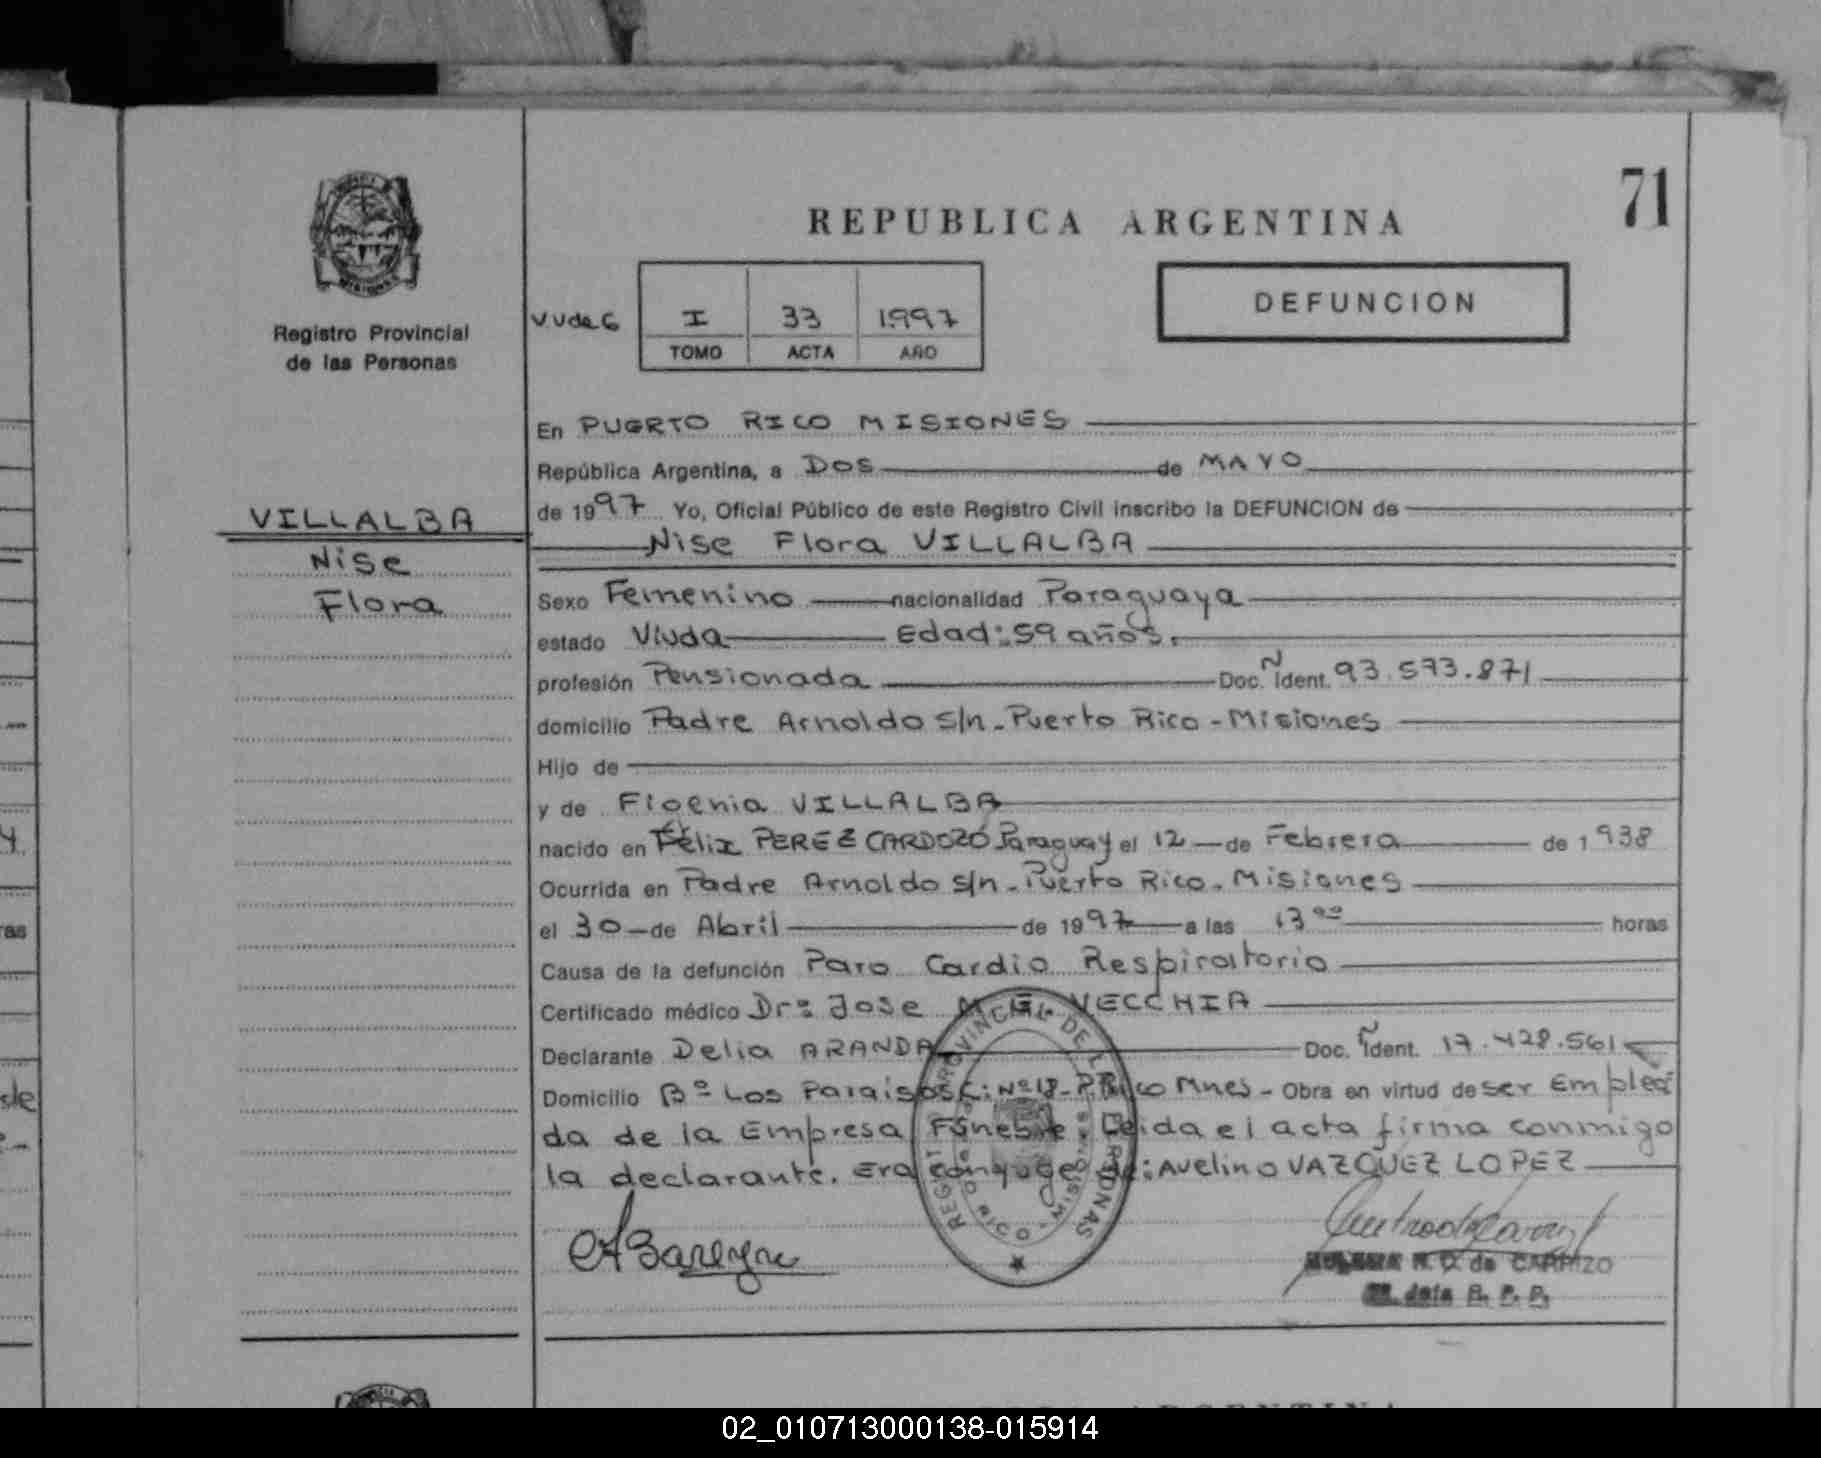 71
REPUBLICA ARGENTINA
DEFUNCION
I 33 1997
TOMO ACTA AÑO
Registro Provincial
de las Personas
VILLALBA
Nise
Flora
En PUERTO RICO MISIONES
República Argentina, a DOS de MAYO
de 1997 Yo, Oficial Público de este Registro Civil inscribo la DEFUNCION de
Nise Flora VILLALBA
Sexo Femenino nacionalidad Paraguaya
estado Viuda Edad: 59 años.
profesión Pensionada Doc. Ñ Ident. 93.573.871
domicilio Padre Arnoldo s/n - Puerto Rico - Misiones
Hijo de
y de VILLALBA
nacido en Félix PEREZ CARDOZO Paraguay el 12 de Febrero de 1938
Ocurrida en Padre Arnoldo s/n - Puerto Rico - Misiones
el 30 de Abril de 1997 a las 13 horas
Causa de la defunción Paro Cardio Respiratorio
Certificado médico Dr: Jose M. E. VECCHIA
Declarante Delia ARANDA Doc. Ñ Ident. 17.428.561
Domicilio Bº Los Paraisos C: Nº 18 - P. Rico Mnes - Obra en virtud de ser Emplea
da de la Empresa Funebre. Leida el acta firma conmigo
la declarante. Era conyuge de: Avelino VAZQUEZ LOPEZ
REGISTRO PROVINCIAL DE LAS PERSONAS
N. O. de CARRIZO
R. P. P.
ARGENTINA
02_010713000138-015914